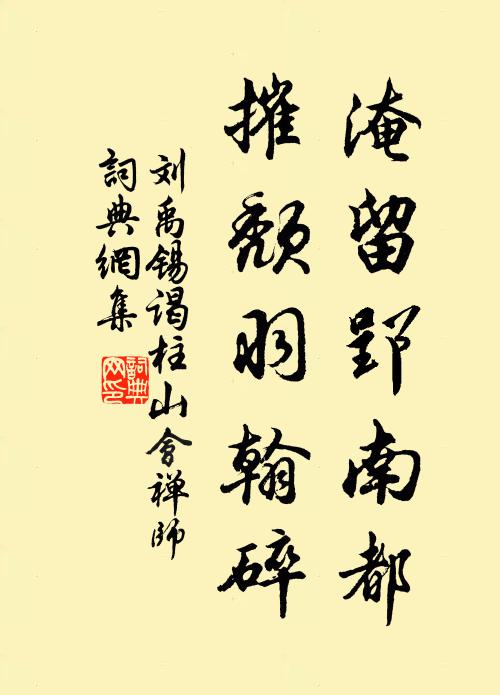 淹留郢南都
摧颓羽翰碎
刘禹锡谒柱山会禅师
詞典網集
詞典网印